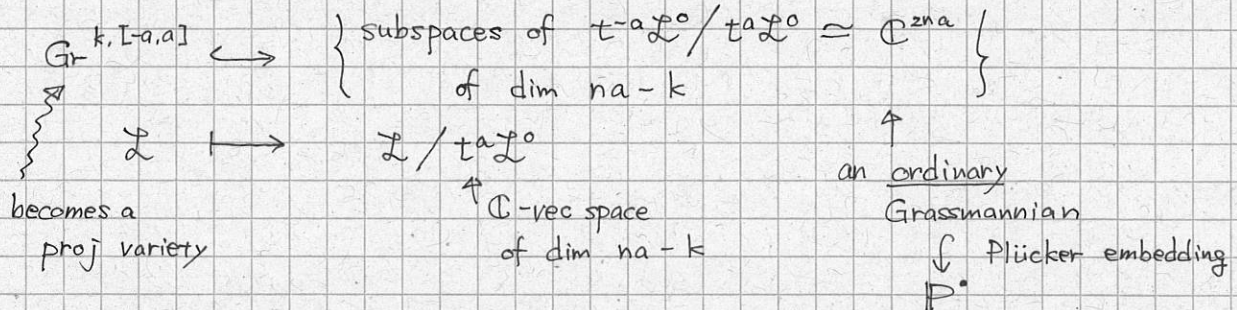 Gr^{k,[-a,a]} ↪ { subspaces of t^{-a}ℒ⁰/t^aℒ⁰ ≃ ℂ^{2na}
of dim na-k }
ℒ ↦ ℒ/t^aℒ⁰
becomes a
proj variety
ℂ-vec space
of dim na-k
an ordinary
Grassmannian
↪ Plücker embedding
ℙ^•